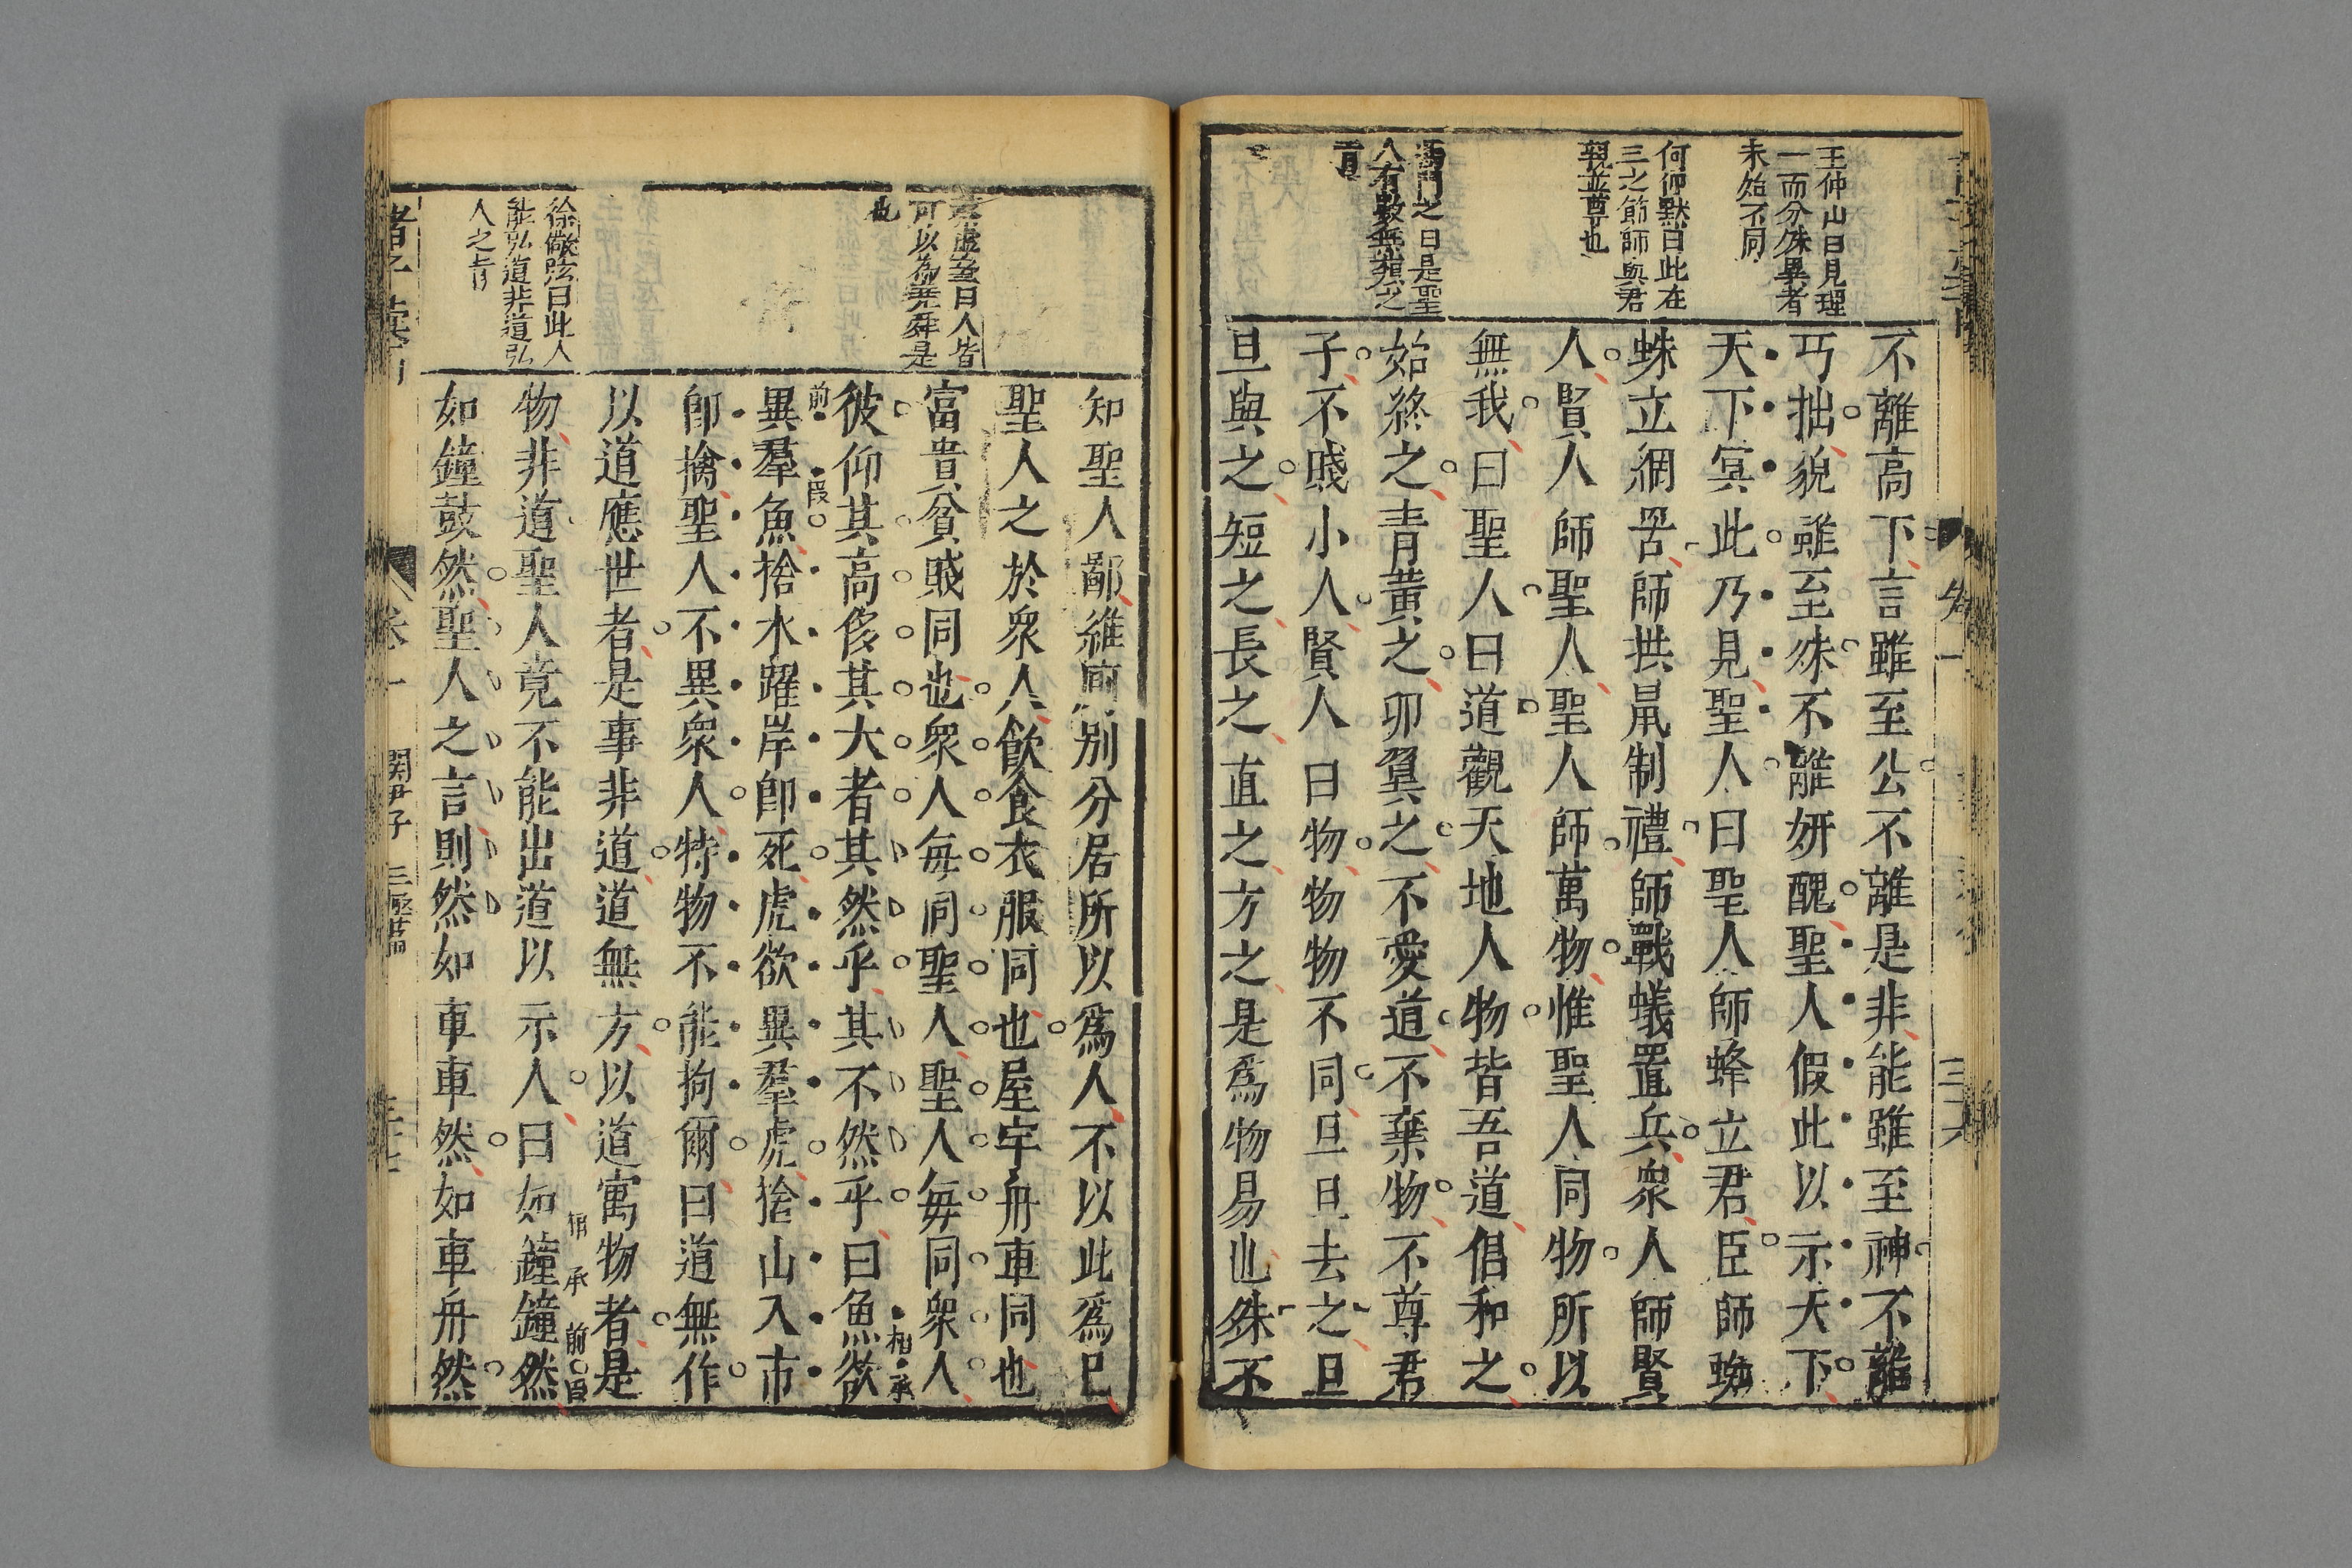 王仲山曰見理
一而分殊異者
未始不同
何仰默曰此在
三之節師與君
親並尊也
之曰是聖
不離高下言雖至公不離是非能雖至神不離
巧拙貌雖至殊不離妍醜聖人假此以示天下
天下冥此乃見聖人曰聖人師蜂立君臣師蜘
蛛立網罟師拱鼠制禮師戰蟻置兵衆人師賢
人賢人師聖人聖人師萬物惟聖人同物所以
無我曰聖人曰道觀天地人物皆吾道倡和之
始終之青黃之卵翼之不愛道不棄物不尊君
子不賤小人賢人曰物物物不同旦旦去之旦
旦與之短之長之直之方之是爲物易也殊不
卷一
三六
曰人皆
可以為堯舜是
也
徐儆弦曰此人
能弘道非道弘
人之旨
知聖人鄙雜厠別分居所以爲人不以此爲已
聖人之於衆人飲食衣服同也屋宇舟車同也
富貴貧賤同也衆人每同聖人聖人每同衆人
彼仰其高侈其大者其然乎其不然乎曰魚欲
相承
前段
異羣魚捨水躍岸卽死虎欲異羣虎捨山入市
卽擒聖人不異衆人特物不能拘爾曰道無作
以道應世者是事非道道無方以道寓物者是
相承前段
物非道聖人竟不能出道以示人曰如鐘鐘然
如鐘鼓然聖人之言則然如車車然如車舟然
卷一
関尹子
三極篇